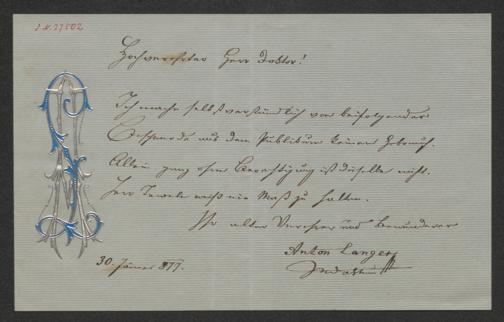 I.N. 27502
Hochverehrter Herr Doktor!
Ich mache selbstverständlich von beifolgender
Beschwerde aus dem Publikum keinen Gebrauch.
Allein ganz ohne Berechtigung ist dieselbe nicht.
Herr Tewele weiß nie Maß zu halten.
Ihr alter Verehrer und Bewunderer
Anton Langer
30. Jänner 877.